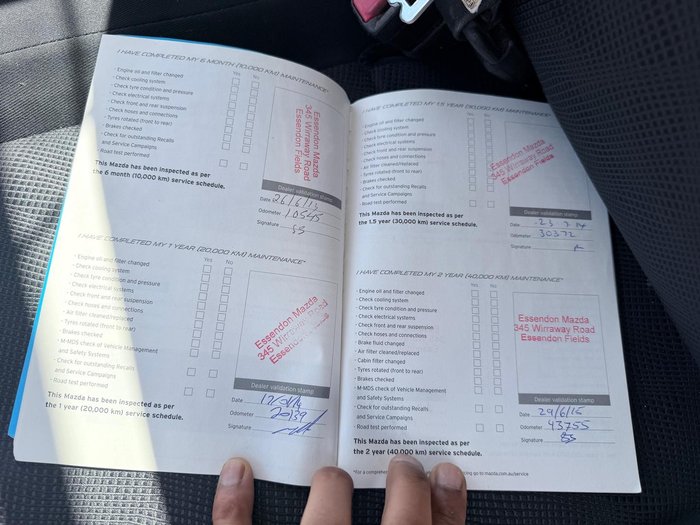 I HAVE COMPLETED MY 6 MONTH (10,000 KM) MAINTENANCE*
Yes No
- Engine oil and filter changed
- Check cooling system
- Check tyre condition and pressure
- Check electrical systems
- Check front and rear suspension
- Check hoses and connections
- Tyres rotated (front to rear)
- Brakes checked
- Check for outstanding Recalls
and Service Campaigns
- Road test performed
This Mazda has been inspected as per
the 6 month (10,000 km) service schedule.
Essendon Mazda
345 Wirraway Road
Essendon Fields
Dealer validation stamp
Date 26/6/13
Odometer 10545
Signature
I HAVE COMPLETED MY 1 YEAR (20,000 KM) MAINTENANCE*
Yes No
- Engine oil and filter changed
- Check cooling system
- Check tyre condition and pressure
- Check electrical systems
- Check front and rear suspension
- Check hoses and connections
- Air filter cleaned/replaced
- Tyres rotated (front to rear)
- Brakes checked
- M-MDS check of Vehicle Management
and Safety Systems
- Check for outstanding Recalls
and Service Campaigns
- Road test performed
This Mazda has been inspected as per
the 1 year (20,000 km) service schedule.
Essendon Mazda
345 Wirraway Road
Dealer validation stamp
Date
Odometer 20139
Signature
I HAVE COMPLETED MY 1.5 YEAR (30,000 KM) MAINTENANCE*
- Engine oil and filter changed
- Check cooling system
- Check tyre condition and pressure
- Check electrical systems
- Check front and rear suspension
- Check hoses and connections
- Air filter cleaned/replaced
- Tyres rotated (front to rear)
- Brakes checked
- Check for outstanding Recalls
and Service Campaigns
- Road test performed
This Mazda has been inspected as per
the 1.5 year (30,000 km) service schedule.
Essendon Mazda
345 Wirraway Road
Essendon Fields
Dealer validation stamp
Date 23 7 14
Odometer 30372
Signature
I HAVE COMPLETED MY 2 YEAR (40,000 KM) MAINTENANCE*
Yes No
- Engine oil and filter changed
- Check cooling system
- Check tyre condition and pressure
- Check electrical systems
- Check front and rear suspension
- Check hoses and connections
- Brake fluid changed
- Air filter cleaned/replaced
- Cabin filter changed
- Tyres rotated (front to rear)
- Brakes checked
- M-MDS check of Vehicle Management
and Safety Systems
- Check for outstanding Recalls
and Service Campaigns
- Road test performed
This Mazda has been inspected as per
the 2 year (40,000 km) service schedule.
Essendon Mazda
345 Wirraway Road
Essendon Fields
Dealer validation stamp
Date 29/6/15
Odometer 43755
Signature
*For a comprehen
cing go to mazda.com.au/service